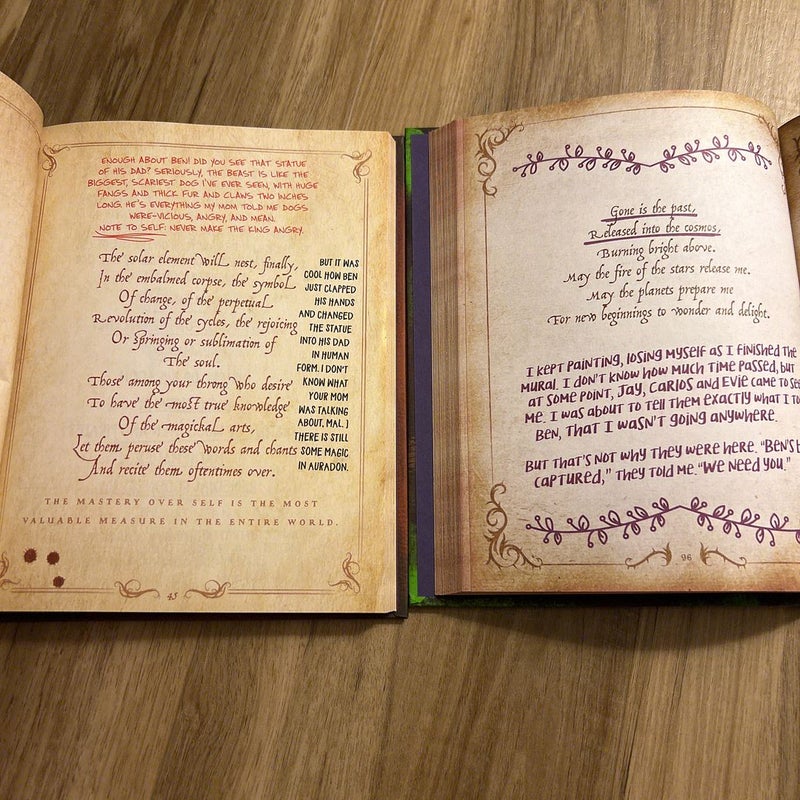 ENOUGH ABOUT BEN! DID YOU SEE THAT STATUE
OF HIS DAD? SERIOUSLY, THE BEAST IS LIKE THE
BIGGEST, SCARIEST DOG I'VE EVER SEEN, WITH HUGE
FANGS AND THICK FUR AND CLAWS TWO INCHES
LONG. HE'S EVERYTHING MY MOM TOLD ME DOGS
WERE-VICIOUS, ANGRY, AND MEAN.
NOTE TO SELF: NEVER MAKE THE KING ANGRY.
The solar element will nest, finally,
In the embalmed corpse, the symbol
Of change, of the perpetual
Revolution of the cycles, the rejoicing
Or springing or sublimation of
The soul.
Those among your throng who desire
To have the most true knowledge
Of the magickal arts,
Let them peruse these words and chants
And recite them oftentimes over.
BUT IT WAS
COOL HOW BEN
JUST CLAPPED
HIS HANDS
AND CHANGED
THE STATUE
INTO HIS DAD
IN HUMAN
FORM. I DON'T
KNOW WHAT
YOUR MOM
WAS TALKING
ABOUT, MAL. )
THERE IS STILL
SOME MAGIC
IN AURADON.
THE MASTERY OVER SELF IS THE MOST
VALUABLE MEASURE IN THE ENTIRE WORLD.
45
Gone is the past,
Released into the cosmos,
Burning bright above.
May the fire of the stars release me.
May the planets prepare me
For new beginnings to wonder and delight.
I KEPT PAINTING, LOSING MYSELF AS I FINISHED THE
MURAL. I DON'T KNOW HOW MUCH TIME PASSED, BUT
AT SOME POINT, JAY, CARLOS AND EVIE CAME TO SEE
ME. I WAS ABOUT TO TELL THEM EXACTLY WHAT I TO
BEN, THAT I WASN'T GOING ANYWHERE.
BUT THAT'S NOT WHY THEY WERE HERE. "BEN'S
CAPTURED," THEY TOLD ME. "WE NEED YOU."
96